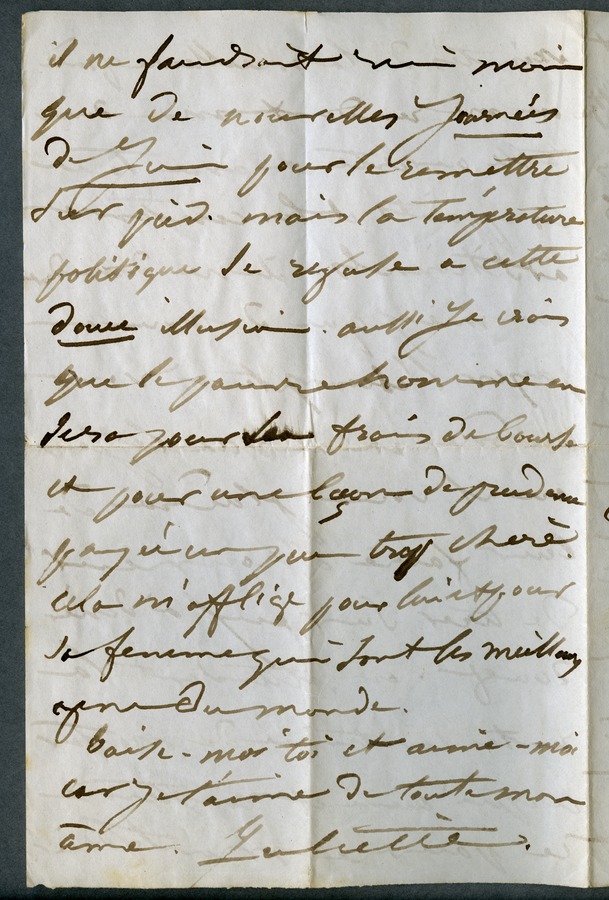 il ne faudrait rien moins
que de nouvelles Journées
de Juin pour le remettre
sur pied. mais la température
politique se refuse a cette
douce illusion. aussi je crois
que le pauvre homme en
sera pour ses frais de bourse
et pour une leçon de prudence
payée un peu trop chère.
cela m'afflige pour lui et pour
sa femme qui sont les meilleurs
gens du monde.
baise-moi toi et aime-moi
car je t'aime de toute mon
âme. Juliette.